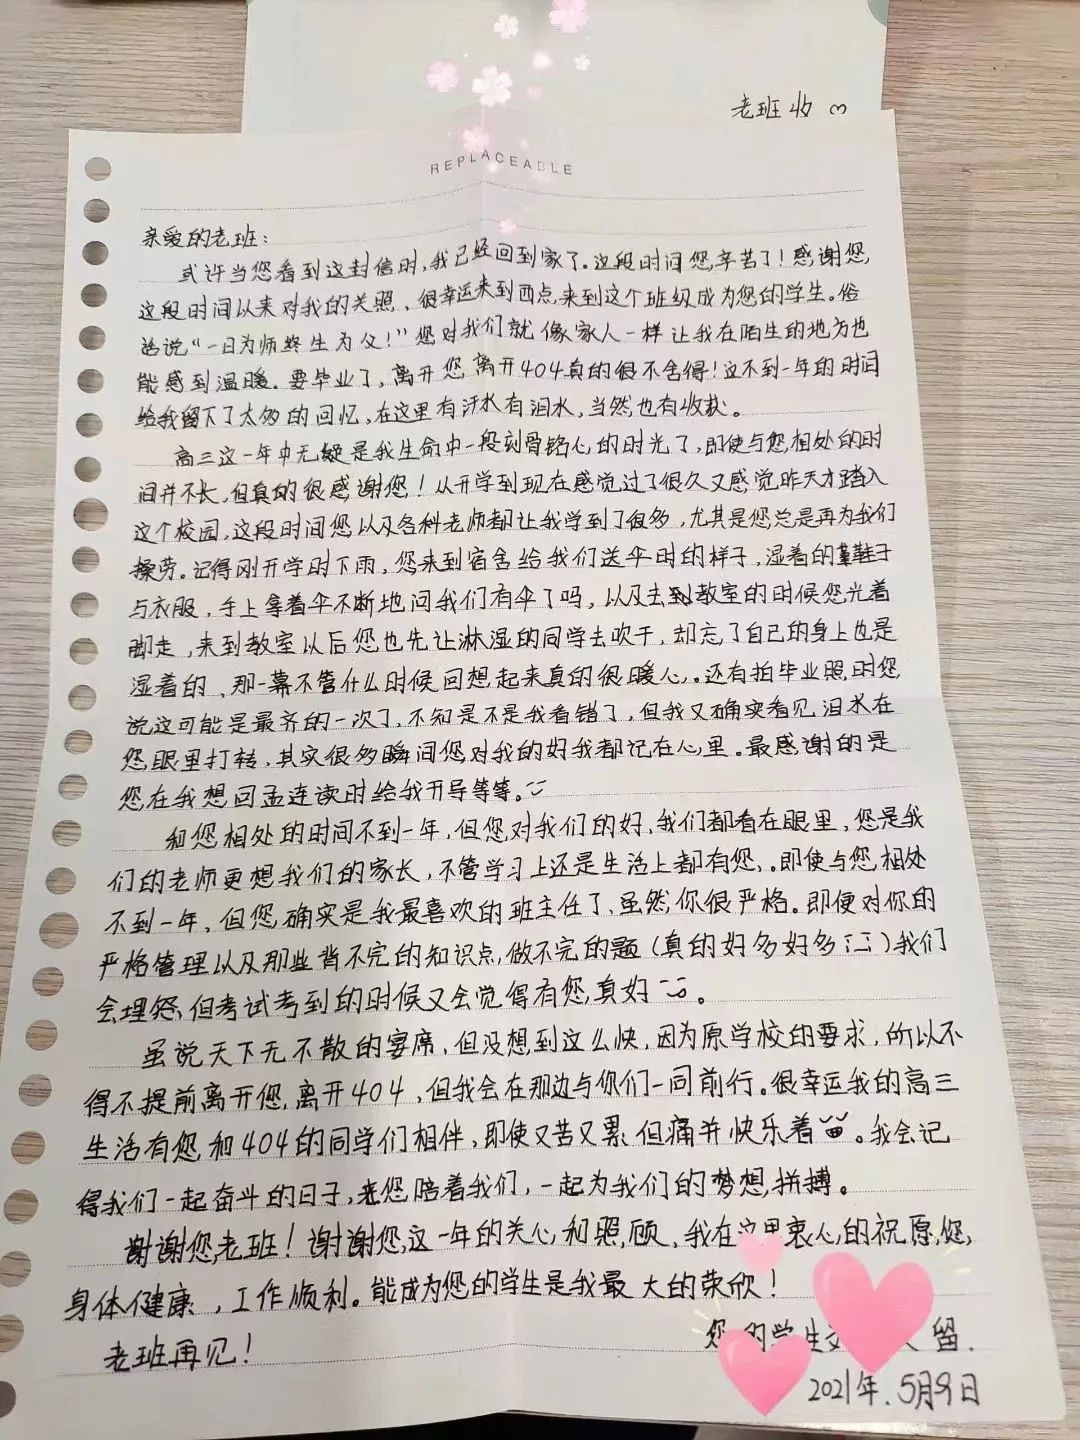 老班收
REPLACEABLE
亲爱的老班：
或许当您看到这封信时，我已经回到家了。这段时间您辛苦了！感谢您，
这段时间以来对我的关照、很幸运来到西点，来到这个班级成为您的学生。俗
话说“一日为师终生为父！”您对我们就像家人一样让我在陌生的地方也
能感到温暖。要毕业了，离开您离开404真的很不舍得！这不到一年的时间
给我留下了太多的回忆，在这里有汗水有泪水，当然也有收获。
高三这一年中无疑是我生命中一段刻骨铭心的时光了，即使与您相处的时
间并不长，但真的很感谢您！从开学到现在感觉过了很久又感觉昨天才踏入
这个校园，这段时间您以及各科老师都让我学到了很多，尤其是您总是再为我们
操劳。记得刚开学时下雨，您来到宿舍给我们送伞时的样子，湿着的鞋子
与衣服，手上拿着伞不断地问我们有伞了吗，以及去到教室的时候您光着
脚走，来到教室以后您也先让淋湿的同学去吹干，却忘了自己的身上也是
湿着的、那一幕不管什么时候回想起来真的很暖心。还有拍毕业照时您
说这可能是最齐的一次了，不知是不是我看错了，但我又确实看见泪水在
您眼里打转，其实很多瞬间您对我的好我都记在心里。最感谢的是
您在我想回孟连读时给我开导等等。
和您相处的时间不到一年，但您对我们的好，我们都看在眼里，您是我
们的老师更想我们的家长，不管学习上还是生活上都有您，。即使与您相处
不到一年，但您确实是我最喜欢的班主任了、虽然你很严格。即便对你的
严格管理以及那些背不完的知识点，做不完的题（真的好多好多）我们
会埋怨，但考试考到的时候又会觉得有您真好。
虽说天下无不散的宴席，但没想到这么快，因为原学校的要求，所以不
得不提前离开您，离开404，但我会在那边与你们一同前行。很幸运我的高三
生活有您和404的同学们相伴，即使又苦又累但痛并快乐着。我会记
得我们一起奋斗的日子，您陪着我们，一起为我们的梦想拼搏。
谢谢您，老班！谢谢您这一年的关心和照顾、我在这里衷心的祝愿您，
身体健康，工作顺利。能成为您的学生是我最大的荣欣！
老班再见！
您的学生 留.
2021年.5月9日